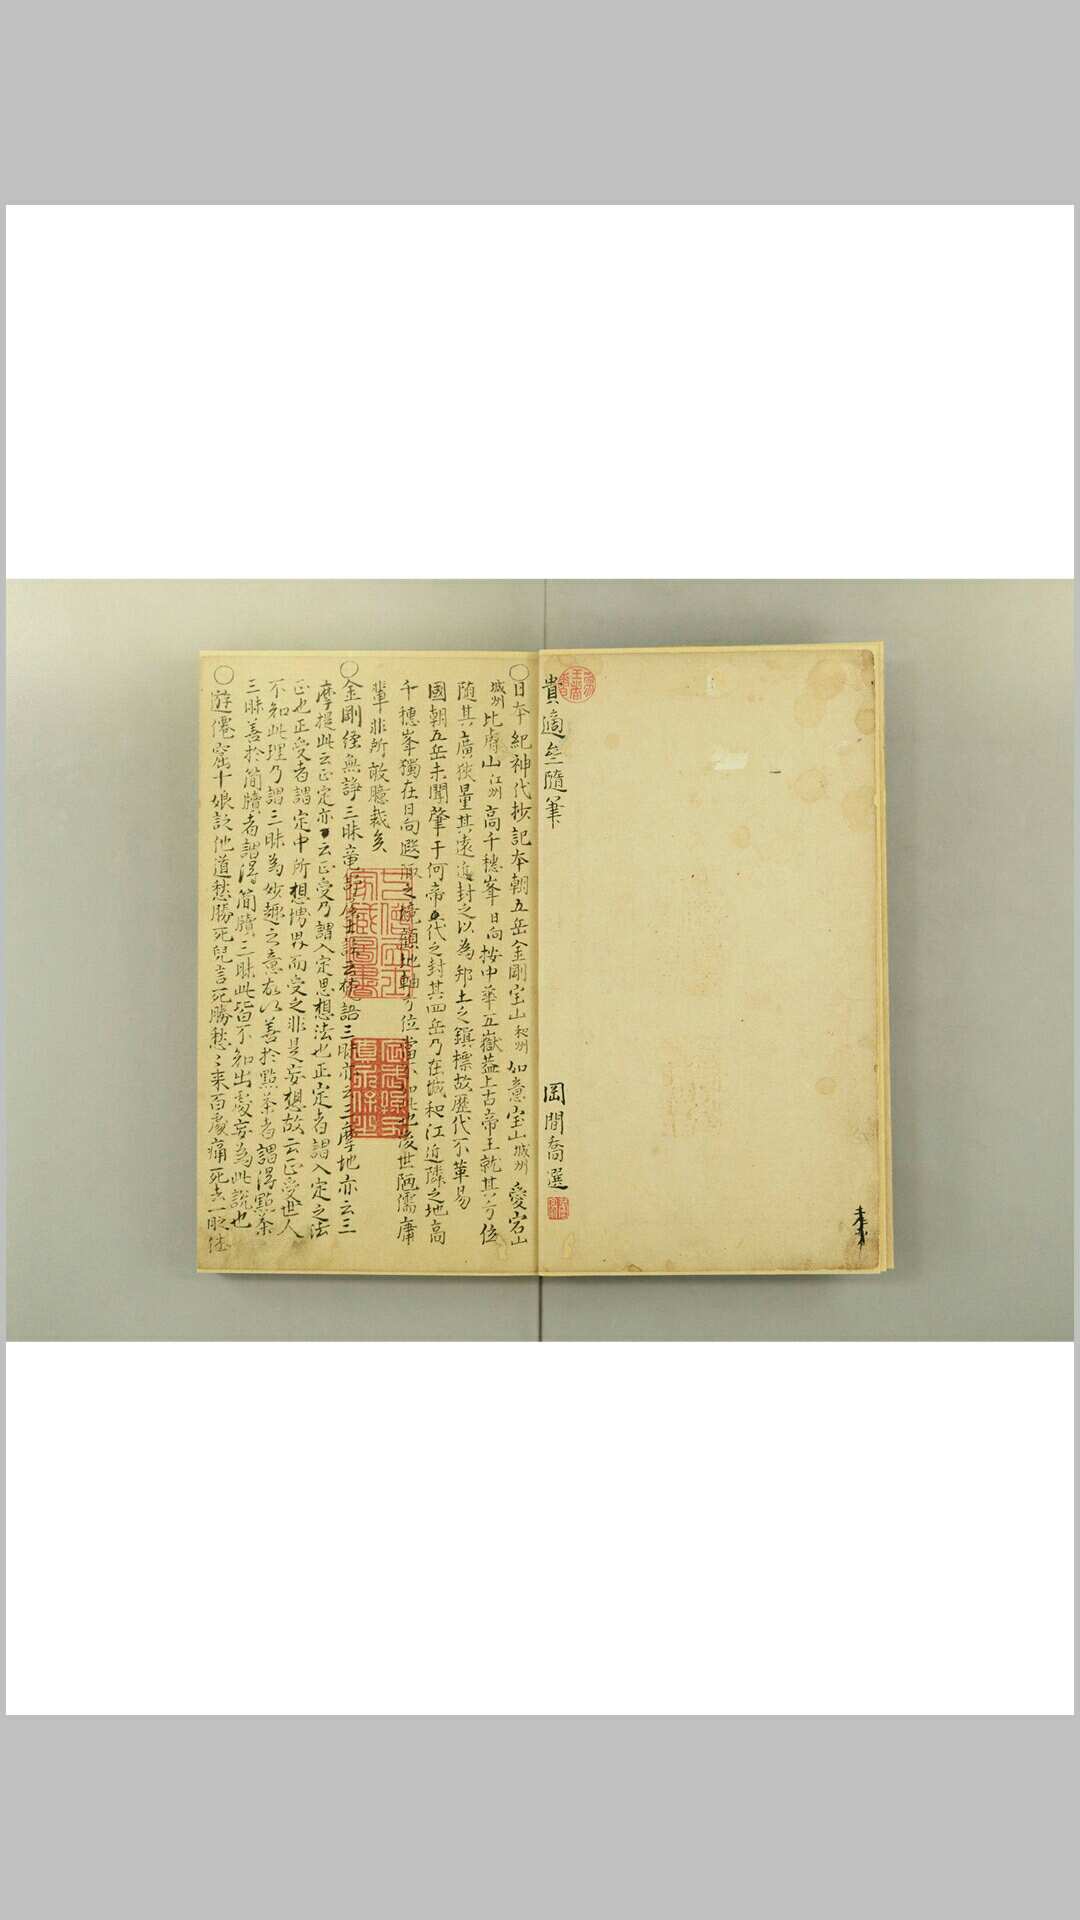 貴適○隨筆
岡間喬選
○日本紀神代抄記本朝五岳金剛宝山和州如意宝山城州愛宕山
城州比睿山江州高千穂峯日向按中華五嶽蓋上古帝王就其方位
随其廣狹量其遠近封之以為邦土之鎮標故歷代不革易
國朝五岳未聞肇于何帝代之封其四岳乃在城和江近隣之地高
千穗峯獨在日向遐陬之境
輩非所敢臆裁矣
○金剛经無諍三昧
摩提此云正定亦云正受乃謂入定思想法也正定者謂入定之法
正也正受者謂定中所想境界而受之非是妄想故云正受世人
不知此理乃謂三昧為妙趣之意故以善於點茶者謂得點茶
三昧善於簡牘者謂得簡牘三昧此皆不知出處妄為此說也
○遊僊窟十娘詠他道愁勝死兒言死勝愁〻来百處痛死去一時休